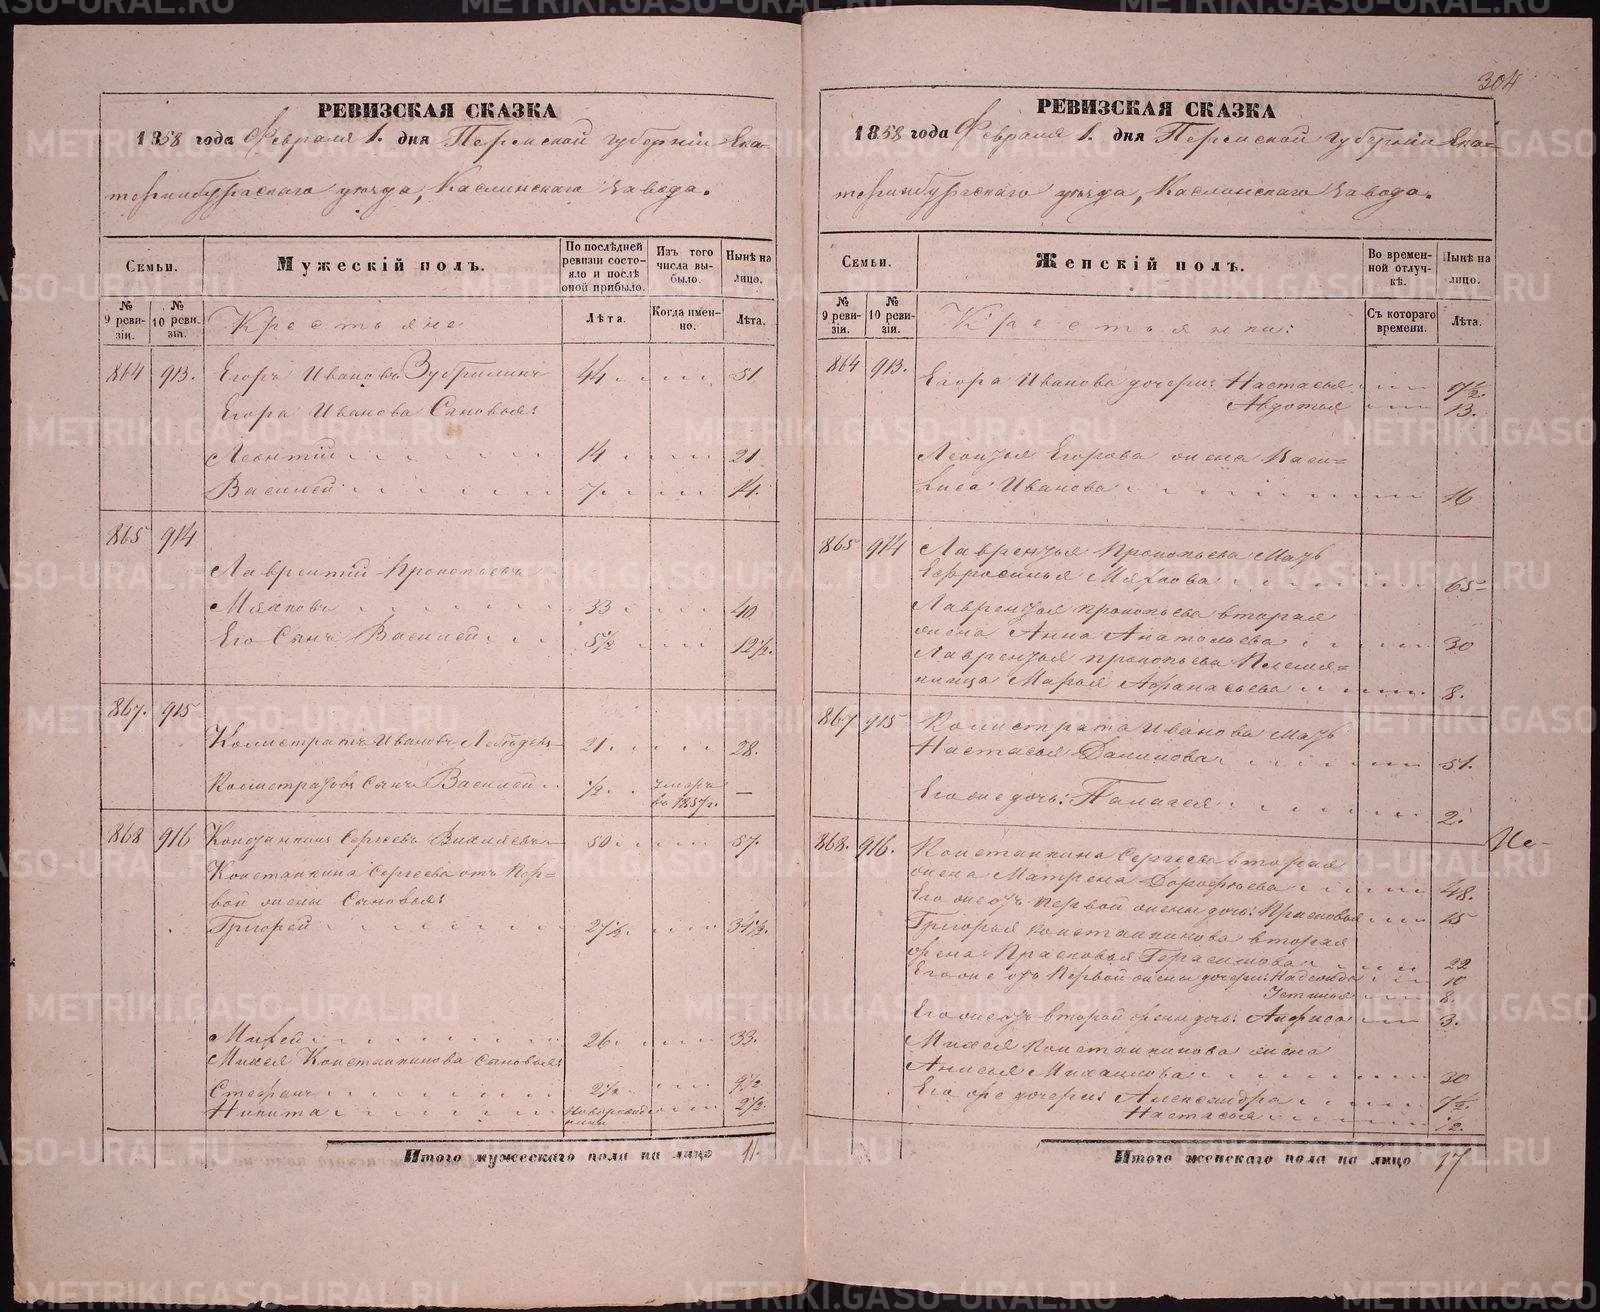 304
РЕВИЗСКАЯ СКАЗКА
1858 года Февраля 1. дня Пермской губерніи Ека-
теринбургскаго уѣзда, Каслинскаго завода.
Семьи.
Мужескій полъ.
По послѣдней ревизіи состояло и послѣ оной прибыло.
Изъ того числа выбыло.
Нынѣ на лицо.
№ 9 ревизіи.
№ 10 ревизіи.
Крестьяне
Лѣта.
Когда именно.
Лѣта.
864 913. Егоръ Ивановъ Зубрилинъ 44 51
Егора Иванова Сыновья:
Леонтій 14 21
Василей 7 14.
865 914
Лаврентій Прокопьевъ
Мяхковъ 33 40
Его Сынъ Василей 5½ 12½.
867. 915
Колистратъ Ивановъ Лебедевъ 21 28.
Колистратовъ Сынъ Василей ½ умеръ въ 1857 г. —
868 916 Константинъ Сергѣевъ 50 57.
Константина Сергѣева отъ пер-
вой жены Сыновья:
Григорей 27½. 34½.
Михей 26. 33.
Михея Константинова Сыновья:
Стефанъ 2½ 9½
Никита Новорожденный 2½.
Итого мужескаго пола на лицо 11.
РЕВИЗСКАЯ СКАЗКА
1858 года Февраля 1. дня Пермской губерніи Ека-
теринбургскаго уѣзда, Каслинскаго завода.
Семьи.
Женскій полъ.
Во временной отлучкѣ.
Нынѣ на лицо.
№ 9 ревизіи.
№ 10 ревизіи.
Крестьянки:
Съ котораго времени.
Лѣта.
864 913. Егора Иванова дочери: Настасья 17½.
Авдотья 13.
Леонтья Егорова жена Васи=
лиса Иванова 16
865 914 Лаврентья Прокопьева Мать
Ефросинья Мяхкова 65
Лаврентья Прокопьева вторая
жена Анна Анатольева 30
Лаврентья Прокопьева Племя=
нница Марья Афанасьева 8.
867 915 Колистрата Иванова Мать
Настасья Данилова 51.
Его же дочь: Палагея 2.
868. 916. Константина Сергѣева вторая
жена Матрена Дорофѣева 48.
Его же отъ первой жены дочь: Прасковья 15
Григорья Константинова вторая
жена Прасковья Герасимова 22
Его же отъ первой жены дочери: Надежда 10
Устинья 8.
Его же отъ второй жены дочь: Анфиса 3.
Михея Константинова жена
Анисья Михайлова 30
Его же дочери: Александра 7½.
Настасья ½.
Не-
Итого женскаго пола на лицо 17
METRIKI.GASO-URAL.RU